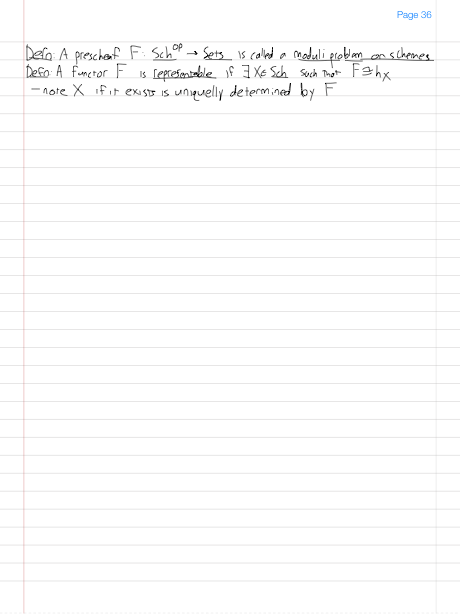 Page 36
Defn: A prescheaf F: Sch^op → Sets is called a moduli problem on schemes
Defn: A functor F is representable if ∃ X∈ Sch such that F≅h_X
- note X if it exists is uniquelly determined by F